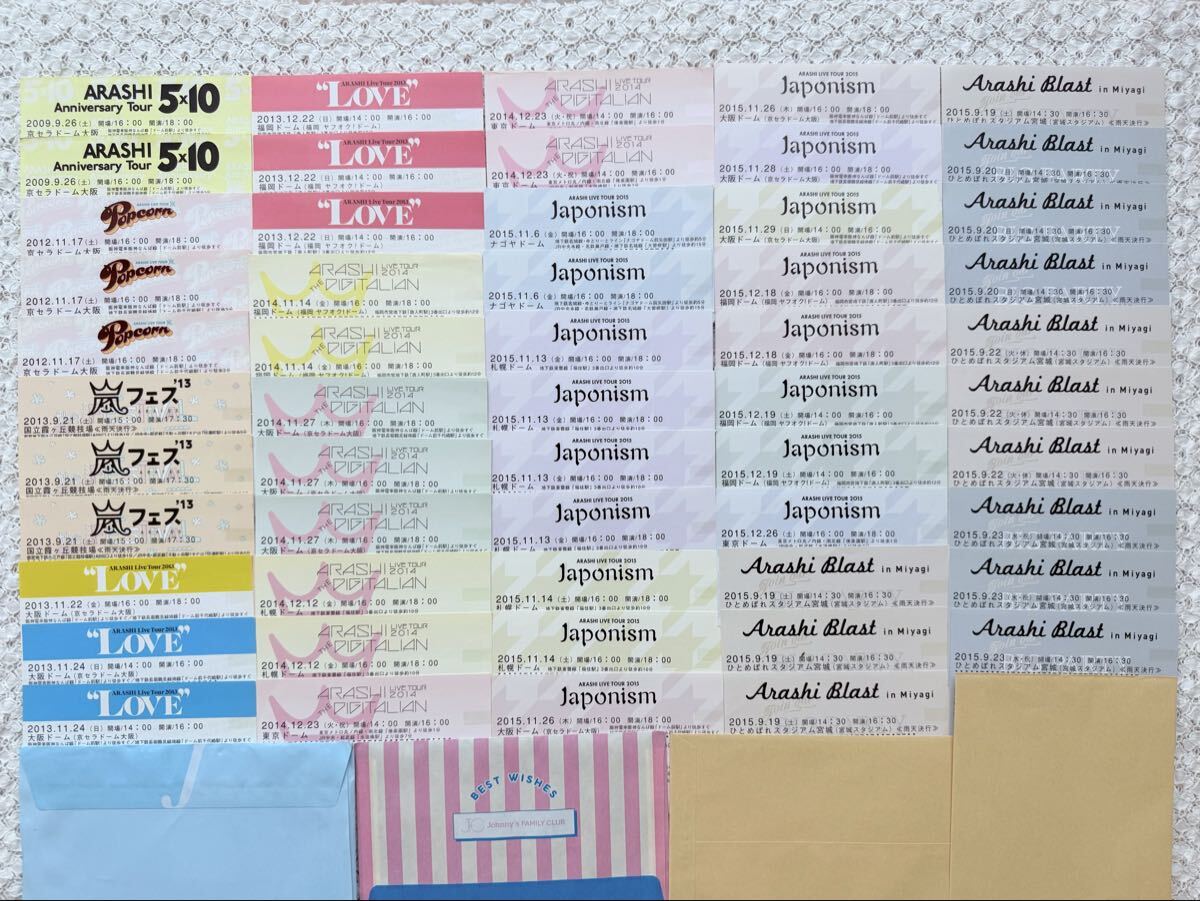 ARASHI
Anniversary Tour 5×10
2009.9.26(土) 開場/16:00 開演/18:00
京セラドーム大阪
ARASHI
Anniversary Tour 5×10
2009.9.26(土) 開場/16:00 開演/18:00
京セラドーム大阪
ARASHI LIVE TOUR
Popcorn
2012.11.17(土) 開場/16:00 開演/18:00
京セラドーム大阪
ARASHI LIVE TOUR
Popcorn
2012.11.17(土) 開場/16:00 開演/18:00
京セラドーム大阪
ARASHI LIVE TOUR
Popcorn
2012.11.17(土) 開場/16:00 開演/18:00
京セラドーム大阪
嵐フェス'13
2013.9.21(土) 開場/15:00 開演/17:30
国立霞ヶ丘競技場≪雨天決行≫
嵐フェス'13
2013.9.21(土) 開場/15:00 開演/17:30
国立霞ヶ丘競技場≪雨天決行≫
嵐フェス'13
2013.9.21(土) 開場/15:00 開演/17:30
国立霞ヶ丘競技場≪雨天決行≫
ARASHI Live Tour 2013
“LOVE”
2013.11.22(金) 開場/16:00 開演/18:00
大阪ドーム(京セラドーム大阪)
ARASHI Live Tour 2013
“LOVE”
2013.11.24(日) 開場/14:00 開演/16:00
大阪ドーム(京セラドーム大阪)
ARASHI Live Tour 2013
“LOVE”
2013.11.24(日) 開場/14:00 開演/16:00
大阪ドーム(京セラドーム大阪)
ARASHI Live Tour 2013
“LOVE”
2013.12.22(日) 開場/14:00 開演/16:00
福岡ドーム(福岡 ヤフオク!ドーム)
ARASHI Live Tour 2013
“LOVE”
2013.12.22(日) 開場/14:00 開演/16:00
福岡ドーム(福岡 ヤフオク!ドーム)
ARASHI Live Tour 2013
“LOVE”
2013.12.22(日) 開場/14:00 開演/16:00
福岡ドーム(福岡 ヤフオク!ドーム)
ARASHI LIVE TOUR 2014
THE DIGITALIAN
2014.11.14(金) 開場/16:00 開演/18:00
福岡ドーム(福岡 ヤフオク!ドーム)
ARASHI LIVE TOUR 2014
THE DIGITALIAN
2014.11.14(金) 開場/16:00 開演/18:00
福岡ドーム(福岡 ヤフオク!ドーム)
ARASHI LIVE TOUR 2014
THE DIGITALIAN
2014.11.27(木) 開場/16:00 開演/18:00
大阪ドーム(京セラドーム大阪)
ARASHI LIVE TOUR 2014
THE DIGITALIAN
2014.11.27(木) 開場/16:00 開演/18:00
大阪ドーム(京セラドーム大阪)
ARASHI LIVE TOUR 2014
THE DIGITALIAN
2014.11.27(木) 開場/16:00 開演/18:00
大阪ドーム(京セラドーム大阪)
ARASHI LIVE TOUR 2014
THE DIGITALIAN
2014.12.12(金) 開場/16:00 開演/18:00
札幌ドーム
ARASHI LIVE TOUR 2014
THE DIGITALIAN
2014.12.12(金) 開場/16:00 開演/18:00
札幌ドーム
ARASHI LIVE TOUR 2014
THE DIGITALIAN
2014.12.23(火・祝) 開場/14:00 開演/16:00
東京ドーム
ARASHI LIVE TOUR 2014
THE DIGITALIAN
2014.12.23(火・祝) 開場/14:00 開演/16:00
東京ドーム
ARASHI LIVE TOUR 2014
THE DIGITALIAN
2014.12.23(火・祝) 開場/14:00 開演/16:00
東京ドーム
ARASHI LIVE TOUR 2015
Japonism
2015.11.6(金) 開場/16:00 開演/18:00
ナゴヤドーム
ARASHI LIVE TOUR 2015
Japonism
2015.11.6(金) 開場/16:00 開演/18:00
ナゴヤドーム
ARASHI LIVE TOUR 2015
Japonism
2015.11.13(金) 開場/16:00 開演/18:00
札幌ドーム
ARASHI LIVE TOUR 2015
Japonism
2015.11.13(金) 開場/16:00 開演/18:00
札幌ドーム
ARASHI LIVE TOUR 2015
Japonism
2015.11.13(金) 開場/16:00 開演/18:00
札幌ドーム
ARASHI LIVE TOUR 2015
Japonism
2015.11.13(金) 開場/16:00 開演/18:00
札幌ドーム
ARASHI LIVE TOUR 2015
Japonism
2015.11.14(土) 開場/16:00 開演/18:00
札幌ドーム
ARASHI LIVE TOUR 2015
Japonism
2015.11.14(土) 開場/16:00 開演/18:00
札幌ドーム
ARASHI LIVE TOUR 2015
Japonism
2015.11.26(木) 開場/16:00 開演/18:00
大阪ドーム(京セラドーム大阪)
ARASHI LIVE TOUR 2015
Japonism
2015.11.26(木) 開場/16:00 開演/18:00
大阪ドーム(京セラドーム大阪)
ARASHI LIVE TOUR 2015
Japonism
2015.11.28(土) 開場/16:00 開演/18:00
大阪ドーム(京セラドーム大阪)
ARASHI LIVE TOUR 2015
Japonism
2015.11.29(日) 開場/14:00 開演/16:00
大阪ドーム(京セラドーム大阪)
ARASHI LIVE TOUR 2015
Japonism
2015.12.18(金) 開場/16:00 開演/18:00
福岡ドーム(福岡 ヤフオク!ドーム)
ARASHI LIVE TOUR 2015
Japonism
2015.12.18(金) 開場/16:00 開演/18:00
福岡ドーム(福岡 ヤフオク!ドーム)
ARASHI LIVE TOUR 2015
Japonism
2015.12.19(土) 開場/14:00 開演/16:00
福岡ドーム(福岡 ヤフオク!ドーム)
ARASHI LIVE TOUR 2015
Japonism
2015.12.19(土) 開場/14:00 開演/16:00
福岡ドーム(福岡 ヤフオク!ドーム)
ARASHI LIVE TOUR 2015
Japonism
2015.12.26(土) 開場/16:00 開演/18:00
東京ドーム
Arashi Blast in Miyagi
2015.9.19(土) 開場/14:30 開演/16:30
ひとめぼれスタジアム宮城(宮城スタジアム)≪雨天決行≫
Arashi Blast in Miyagi
2015.9.19(土) 開場/14:30 開演/16:30
ひとめぼれスタジアム宮城(宮城スタジアム)≪雨天決行≫
Arashi Blast in Miyagi
2015.9.19(土) 開場/14:30 開演/16:30
ひとめぼれスタジアム宮城(宮城スタジアム)≪雨天決行≫
Arashi Blast in Miyagi
2015.9.19(土) 開場/14:30 開演/16:30
ひとめぼれスタジアム宮城(宮城スタジアム)≪雨天決行≫
Arashi Blast in Miyagi
2015.9.20(日) 開場/14:30 開演/16:30
ひとめぼれスタジアム宮城(宮城スタジアム)≪雨天決行≫
Arashi Blast in Miyagi
2015.9.20(日) 開場/14:30 開演/16:30
ひとめぼれスタジアム宮城(宮城スタジアム)≪雨天決行≫
Arashi Blast in Miyagi
2015.9.20(日) 開場/14:30 開演/16:30
ひとめぼれスタジアム宮城(宮城スタジアム)≪雨天決行≫
Arashi Blast in Miyagi
2015.9.22(火・休) 開場/14:30 開演/16:30
ひとめぼれスタジアム宮城(宮城スタジアム)≪雨天決行≫
Arashi Blast in Miyagi
2015.9.22(火・休) 開場/14:30 開演/16:30
ひとめぼれスタジアム宮城(宮城スタジアム)≪雨天決行≫
Arashi Blast in Miyagi
2015.9.22(火・休) 開場/14:30 開演/16:30
ひとめぼれスタジアム宮城(宮城スタジアム)≪雨天決行≫
Arashi Blast in Miyagi
2015.9.23(水・祝) 開場/14:30 開演/16:30
ひとめぼれスタジアム宮城(宮城スタジアム)≪雨天決行≫
Arashi Blast in Miyagi
2015.9.23(水・祝) 開場/14:30 開演/16:30
ひとめぼれスタジアム宮城(宮城スタジアム)≪雨天決行≫
Arashi Blast in Miyagi
2015.9.23(水・祝) 開場/14:30 開演/16:30
ひとめぼれスタジアム宮城(宮城スタジアム)≪雨天決行≫
J
BEST WISHES
Johnny's FAMILY CLUB